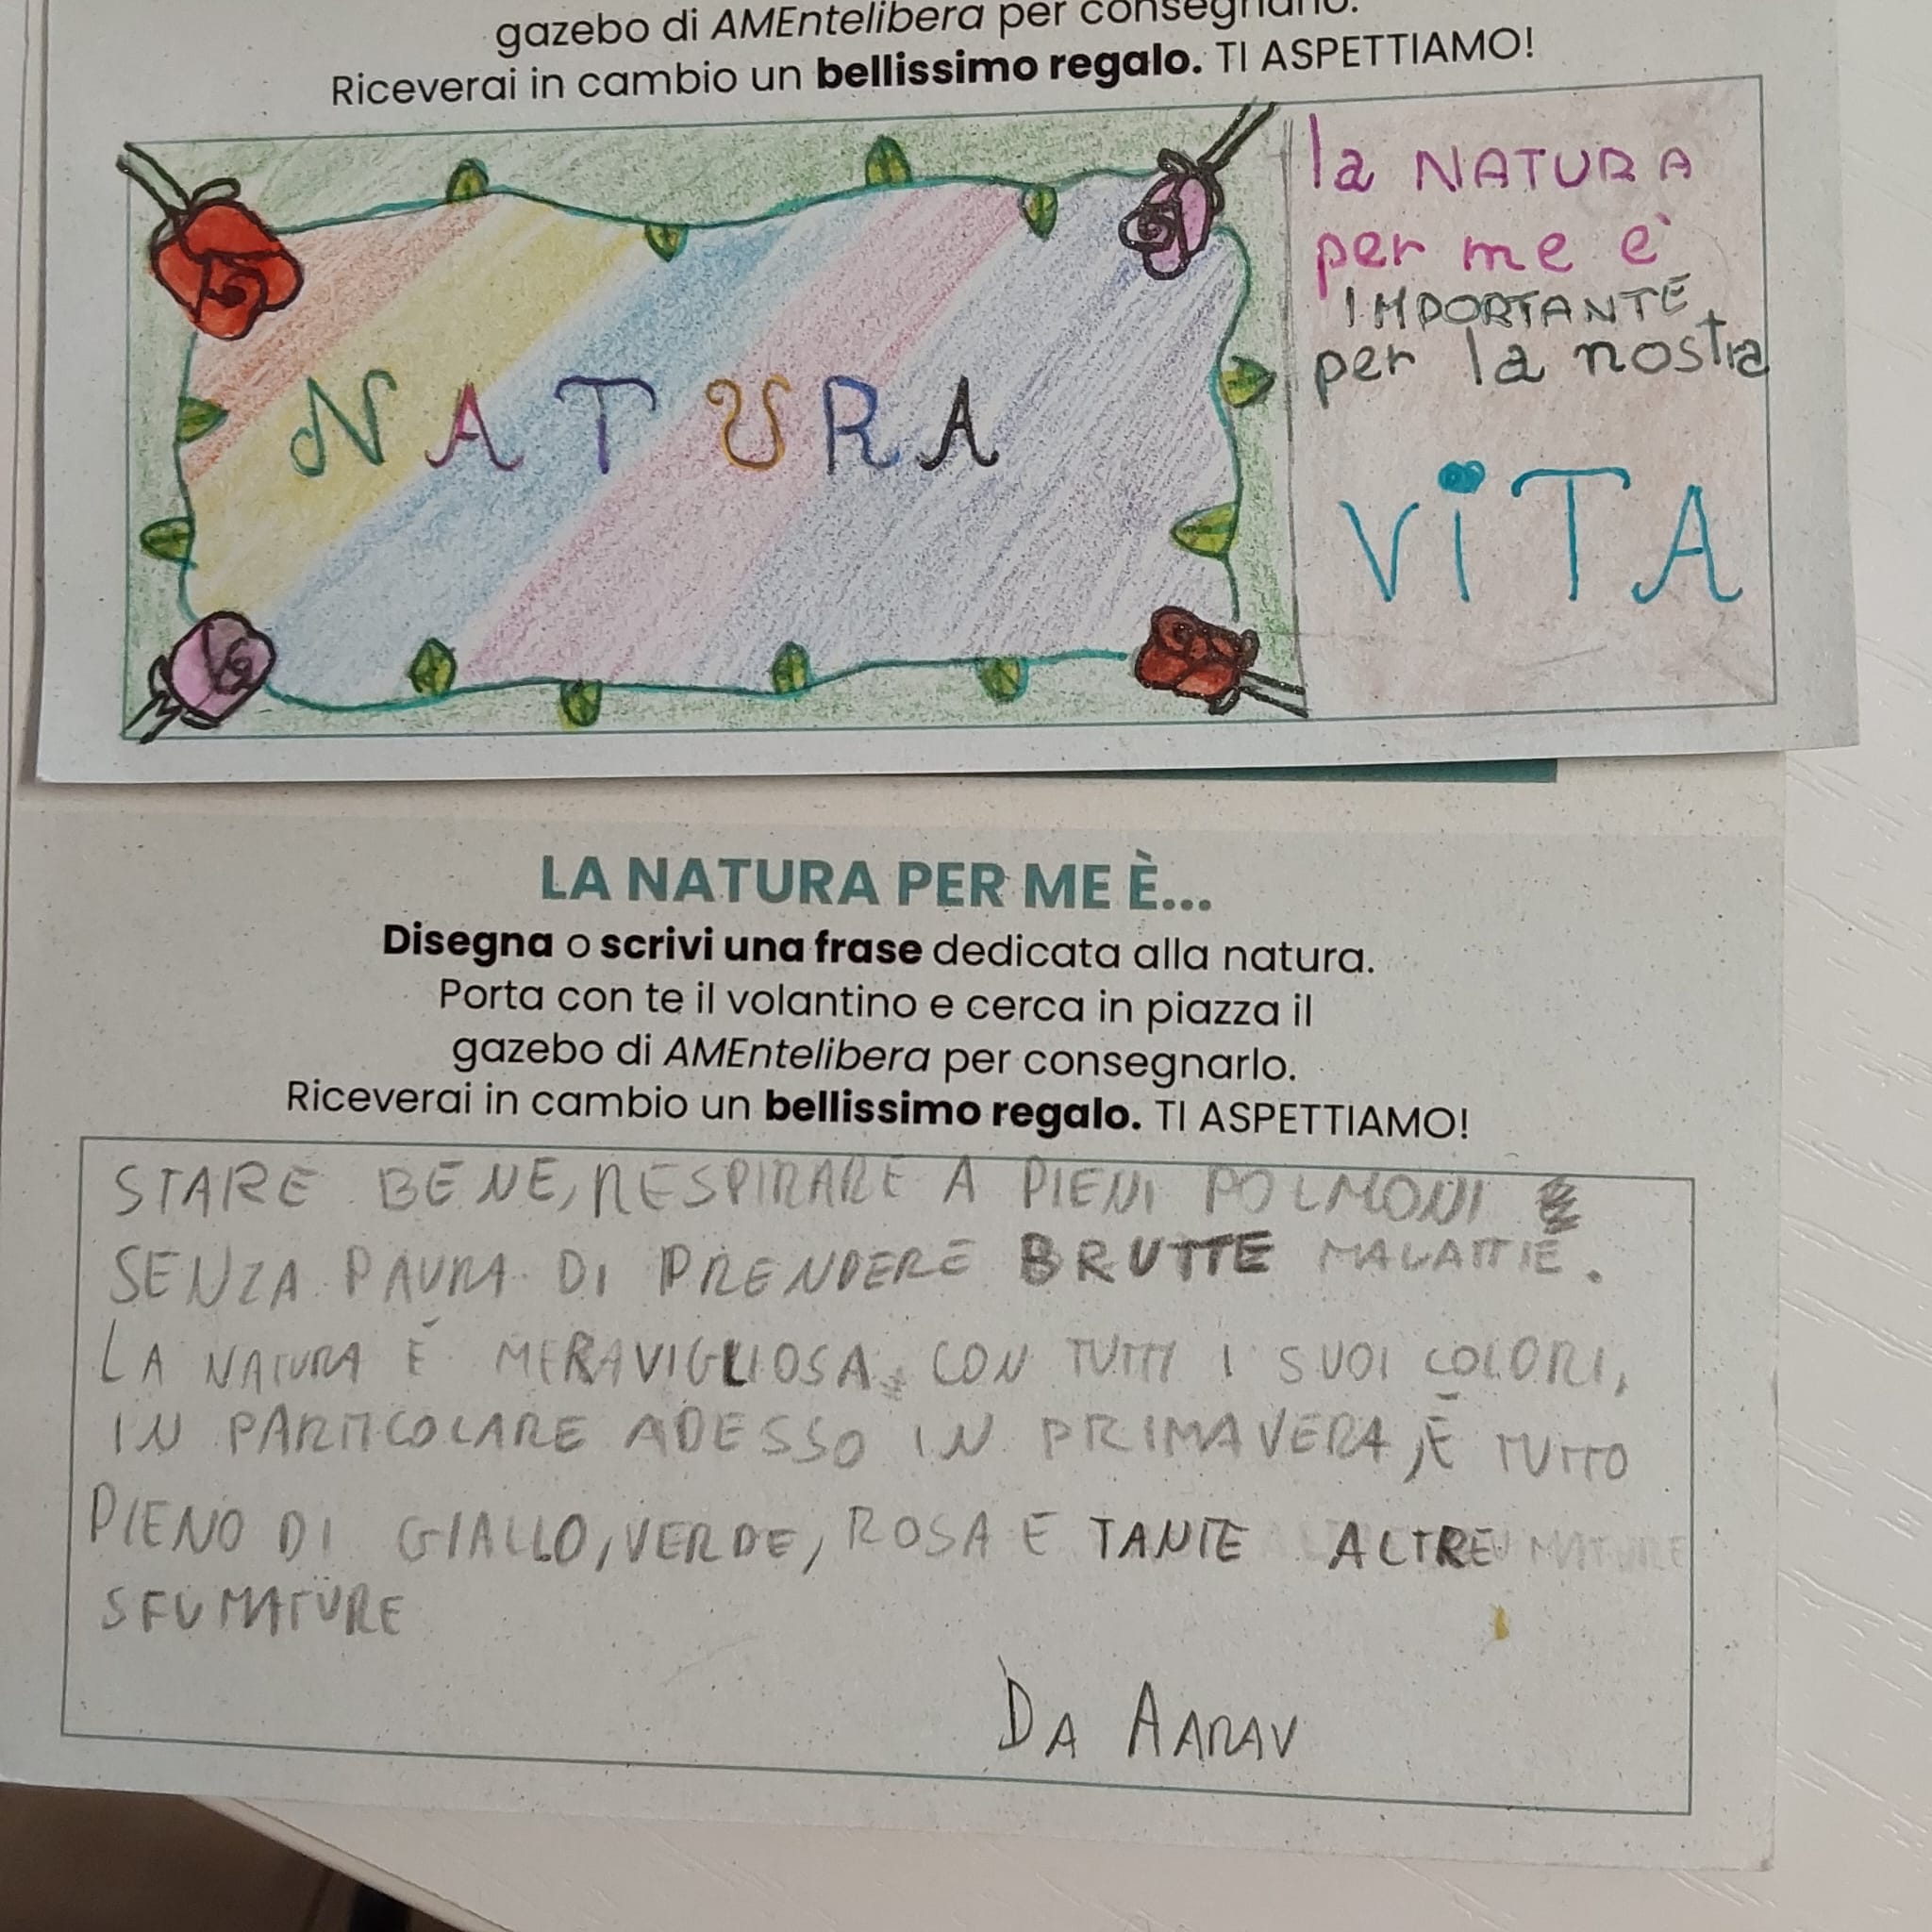 gazebo di AMEntelibera per consegnarlo.
Riceverai in cambio un bellissimo regalo. TI ASPETTIAMO!
NATURA
la NATURA
per me è
IMPORTANTE
per la nostra
ViTA
LA NATURA PER ME È...
Disegna o scrivi una frase dedicata alla natura.
Porta con te il volantino e cerca in piazza il
gazebo di AMEntelibera per consegnarlo.
Riceverai in cambio un bellissimo regalo. TI ASPETTIAMO!
STARE BENE, RESPIRARE A PIENI POLMONI
SENZA PAURA DI PRENDERE BRUTTE MALATTIE.
LA NATURA È MERAVIGLIOSA, CON TUTTI I SUOI COLORI,
IN PARTICOLARE ADESSO IN PRIMAVERA, È TUTTO
PIENO DI GIALLO, VERDE, ROSA E TANTE ALTRE
SFUMATURE
DA AARAV